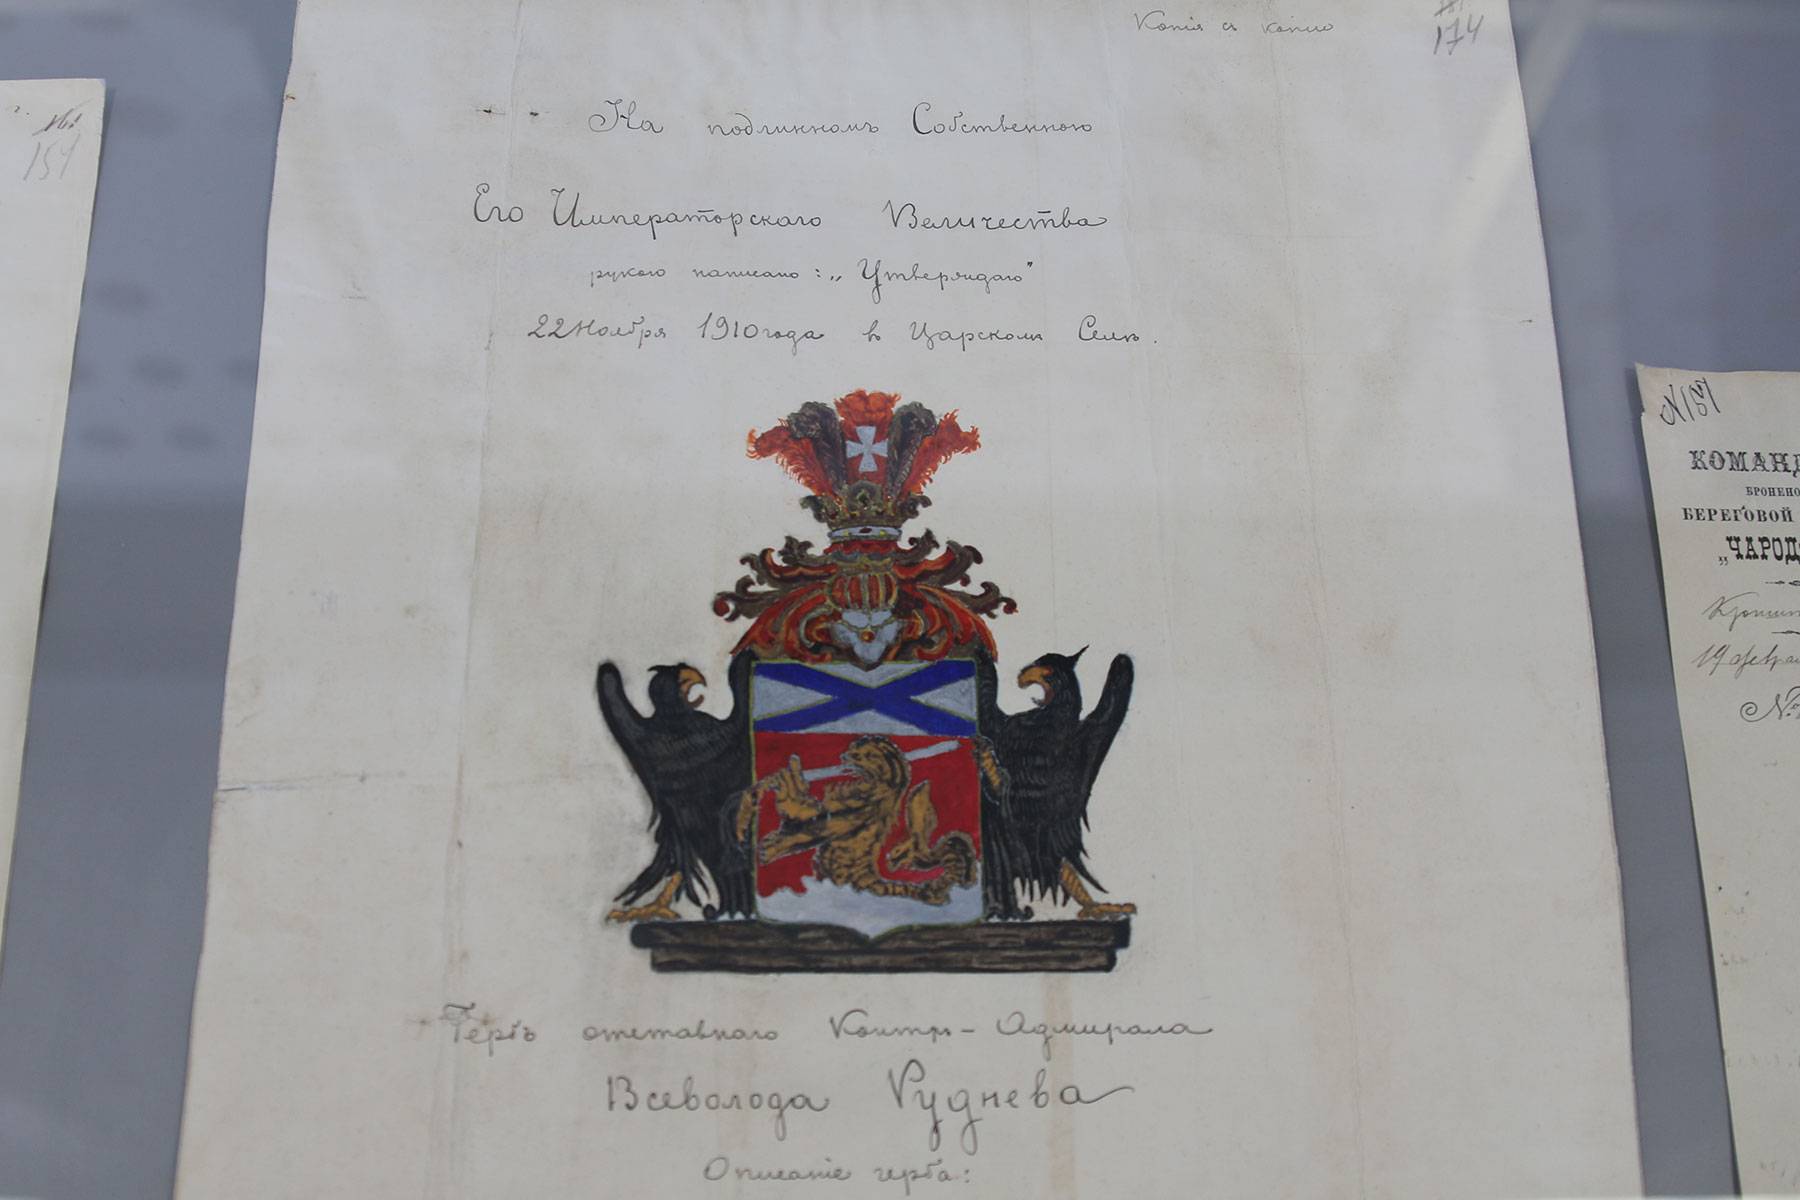 Копія съ копіи
174
На подлинномъ Собственною
Его Императорскаго Величества
рукою написано: „Утверждаю"
22 Ноября 1910 года въ Царскомъ Селѣ.
Гербъ отставнаго Контръ-Адмирала
Всеволода Руднева
Описаніе герба:
154
№157
КОМАНД
БРОНЕНО
БЕРЕГОВОЙ
„ЧАРОД
Кроншт
19 февра
№